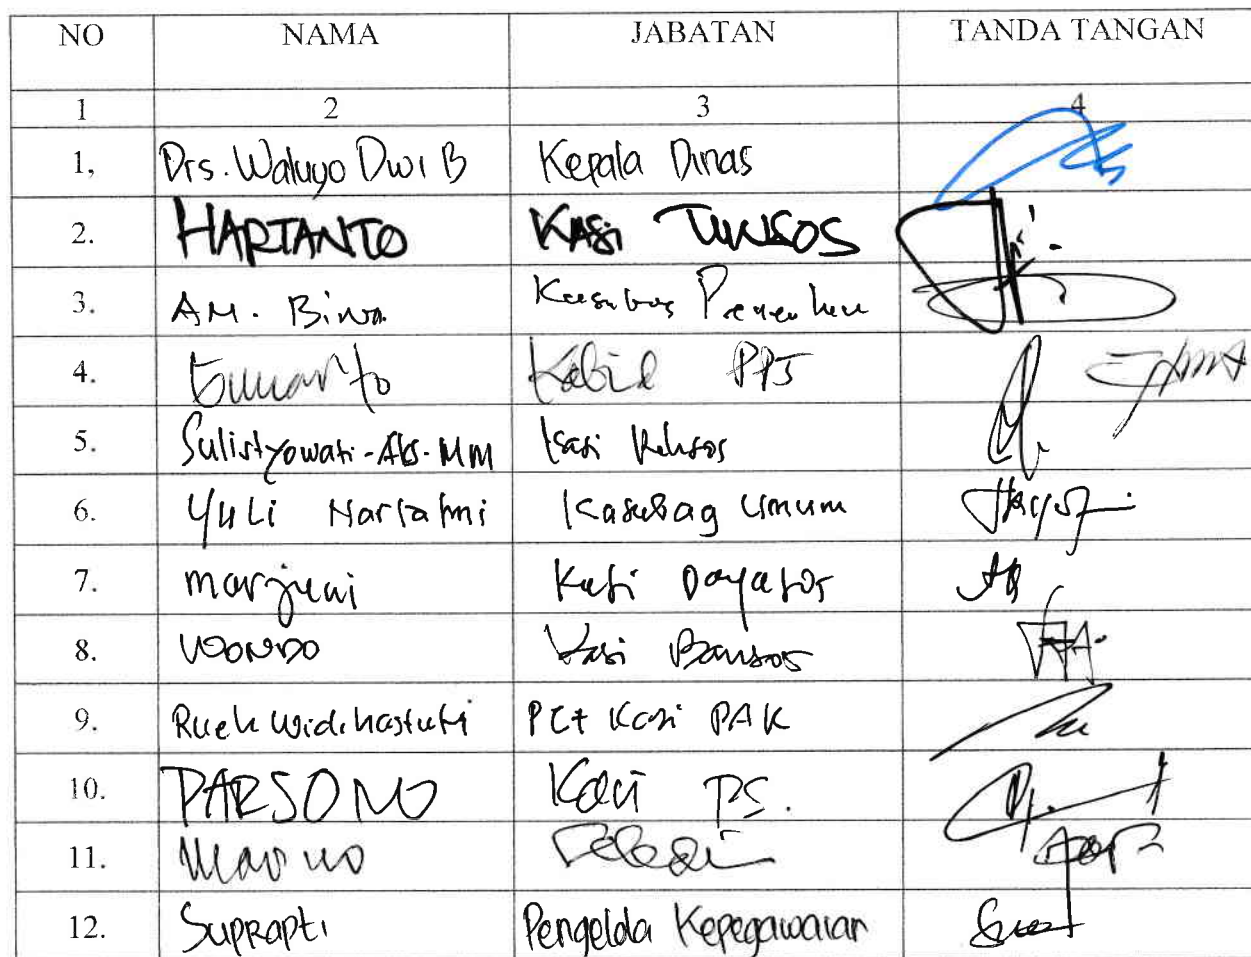 NO NAMA JABATAN TANDA TANGAN
1 2 3 4
1, Drs. Waluyo Dwi B Kepala Dinas
2. HARTANTO KASi TUKSOS
3. AM. Bima
4. Kabid PPJ
5. Sulistyowati-AKS-MM Kasi Rehsos
6. YULi Kasubag Umum
7. marjuni Kasi Dayasos
8. WONDO Kasi Bansos
9. PLt Kasi PAK
10. PARSONO Kasi PS.
11. Marno
12. Suprapti Pengelola Kepegawaian